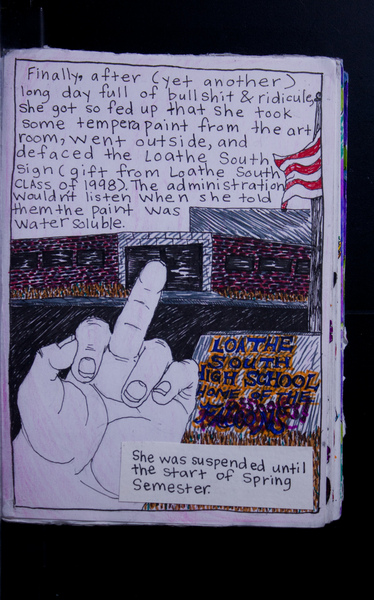 Finally, after (yet another)
long day full of bullshit & ridicule,
she got so fed up that she took
some tempera paint from the art
room, went outside, and
defaced the Loathe South
sign (gift from Loathe South
CLASS of 1998). The administration
wouldnt listen when she told
them the paint was
water soluble.
LOATHE
SOUTH
HIGH SCHOOL
HOME OF THE
She was suspended until
the start of Spring
Semester.